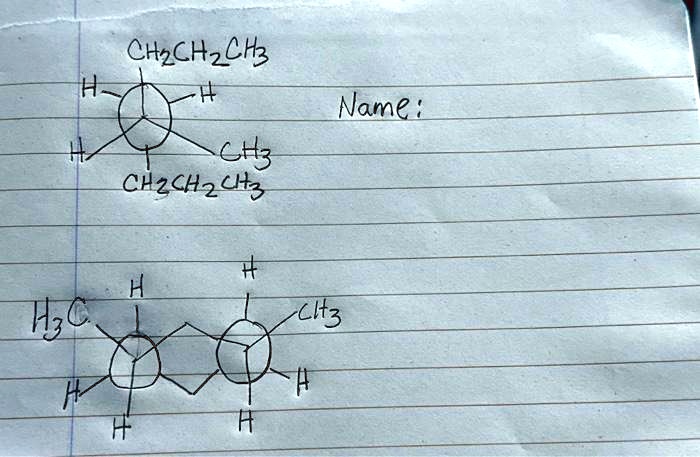 CH2CH2CH3
H H
Name:
H CH3
CH2CH2CH3
H
H
H3C CH3
H H
H H